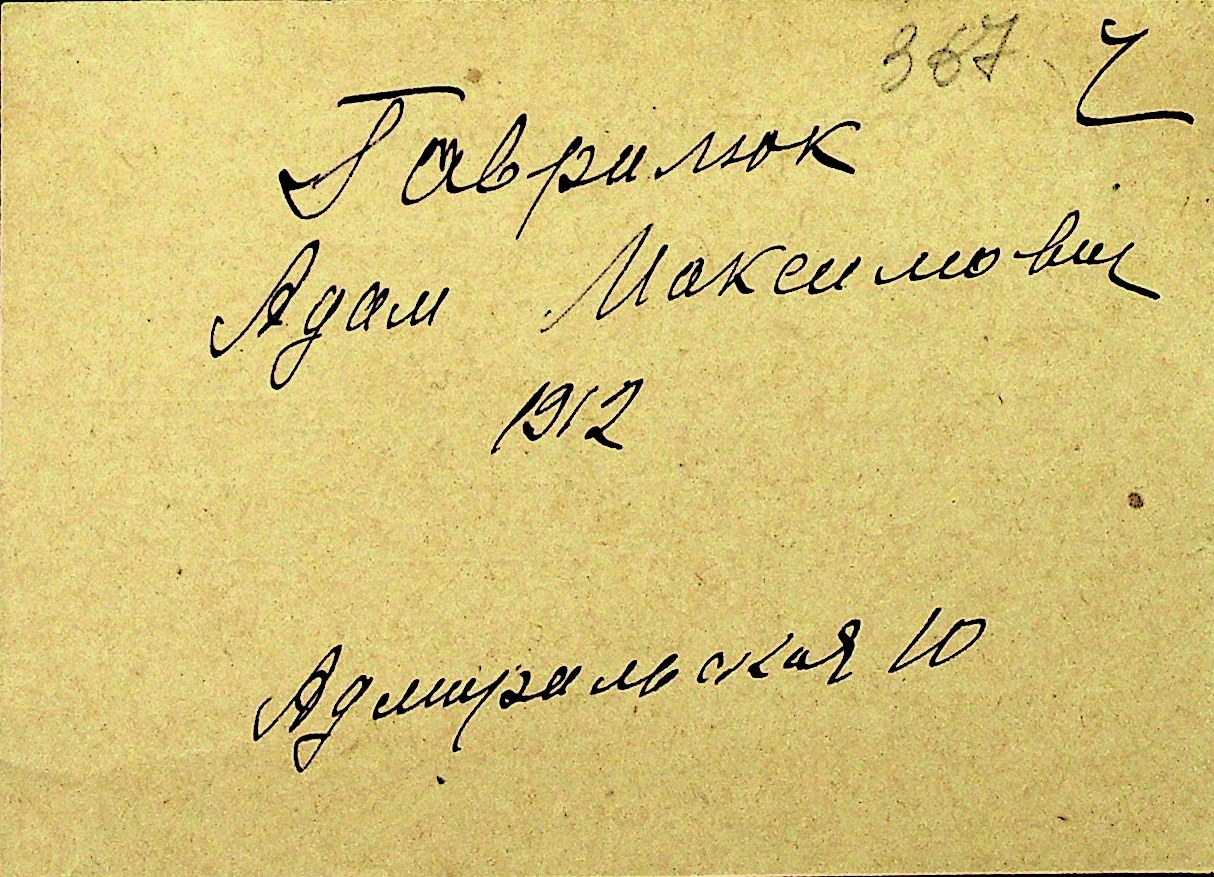 367 Ч
Гаврилюк
Адам Максимович
1912
Адмиральская 10